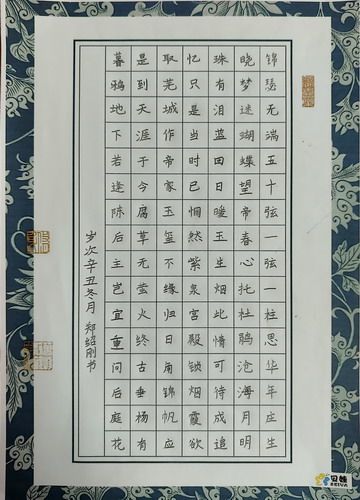 锦瑟无端五十弦一弦一柱思华年庄生
晓梦迷蝴蝶望帝春心托杜鹃沧海月明
珠有泪蓝田日暖玉生烟此情可待成追
忆只是当时已惘然紫泉宫殿锁烟霞欲
取芜城作帝家玉玺不缘归日角锦帆应
是到天涯于今腐草无萤火终古垂杨有
暮鸦地下若逢陈后主岂宜重问后庭花
岁次辛丑冬月 郑绍刚书